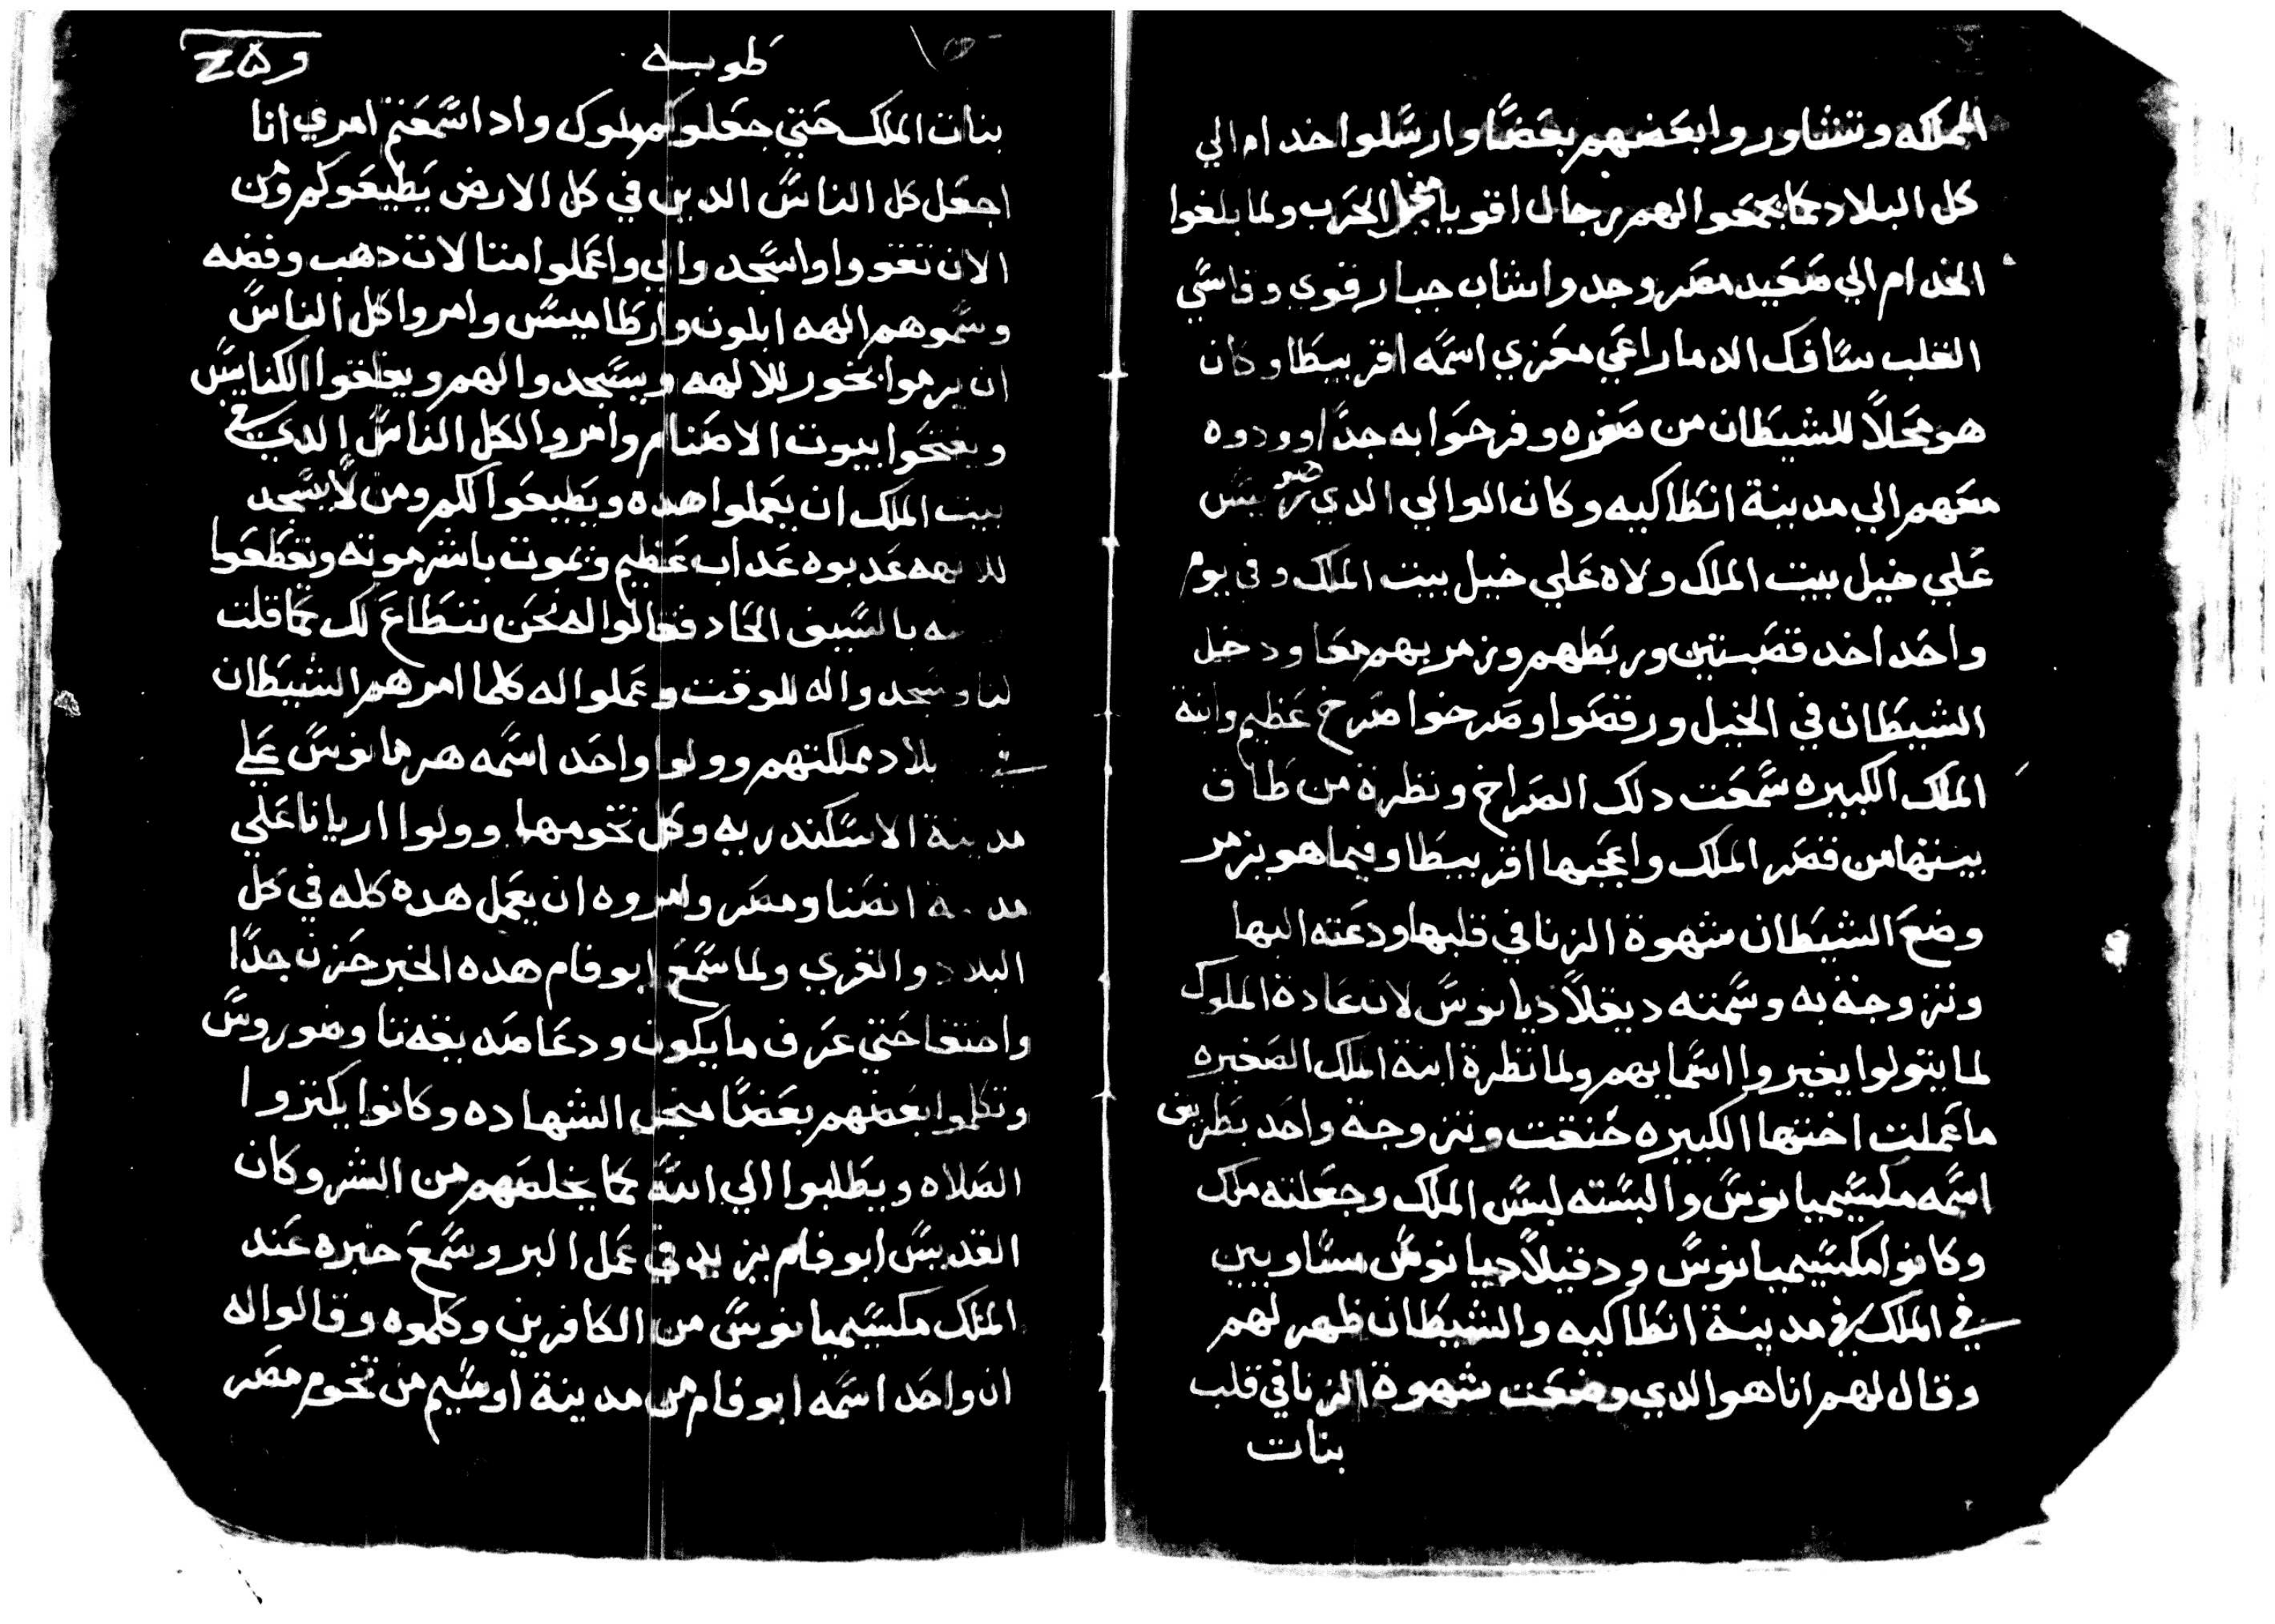 المملكه وتشاوروا بعضهم بعضًا وارسلوا خدام الي
كل البلاد كما يجمعوا الهم رجال اقويا منجل الحرب ولما بلغوا
الخدام الي صعيد مصر وجدوا شاب جبار قوي وقاسي
القلب سافك الدما راعي معزي اسمه اقربيطا وكان
هو محلاً للشيطان من صغره وفرحوا به جدًا وودوه
معهم الي مدينة انطاكيه وكان الوالي الدي هو ريس
علي خيل بيت الملك ولاه علي خيل بيت الملك وفي يوم
واحد اخد قصبتين وربطهم وزمر بهم معا ودخل
الشيطان في الخيل ورقصوا وصرخوا صرخ عظيم وابنة
الملك الكبيره سمعت دلك الصراخ ونظرة من طاق
بيتها من قصر الملك واعجبها اقربيطا وفيما هو يزمر
وضع الشيطان شهوة الزنا في قلبها ودعته اليها
وتزوجة به وسمته ديقلاديانوس لان عادة الملوك
لما يتولوا يغيروا اسمايهم ولما نظرة ابنة الملك الصغيره
ما عملت اختها الكبيره حنقت وتزوجة واحد بطريق
اسمه مكسيميانوس والبسته لبس الملك وجعلته ملك
وكانوا مكسيميانوس ودقيلاديانوس ساويين
في الملك في مدينة انطاكيه والشيطان ظهر لهم
وقال لهم انا هو الدي وضعت شهوة الزنا في قلب
بنات
طوبه
بنات الملك حتي جعلوكم ملوك واد اسمعتم امري انا
اجعل كل الناس الدين في كل الارض يطيعوكم ومن
الان تقووا واسجدوا لي واعملوا متالات دهب وفضه
وسموهم الهه ابلون وارطاميس وامروا كل الناس
ان يرموا بخور للالهه ويسجدوا لهم ويغلقوا الكنايس
ويفتحوا بيوت الاصنام وامروا لكل الناس الدي في
بيت الملك ان يعملوا هده ويطيعوا لكم ومن لا يسجد
للالهه عدبوه عداب عظيم ويموت باشر موته وتقطعوا
بالسيف الحاد فقالوا له نحن نتطاع لك كما قلت
لنا وسجدوا له للوقت وعملوا له كلما امرهم الشيطان
في بلاد مملكتهم وولوا واحد اسمه هرمانوس علي
مدينة الاسكندريه وكل تخومها وولوا اريانا علي
مدينة انصنا ومصر وامروه ان يعمل هده كله في كل
البلاد والقري ولما سمع ابو فام هده الخبر حزن جدًا
واختفا حتي عرف ما يكون ودعا صديقه تاوضوروس
وتكلموا بعضهم بعضًا منجل الشهاده وكانوا يكتروا
الصلاه ويطلبوا الي الله كما يخلصهم من الشر وكان
القديس ابو فام يزيد في عمل البر وسمع خبره عند
الملك مكسيميانوس من الكافرين وكلموه وقالوا له
ان واحد اسمه ابو فام من مدينة اوسيم من تخوم مصر